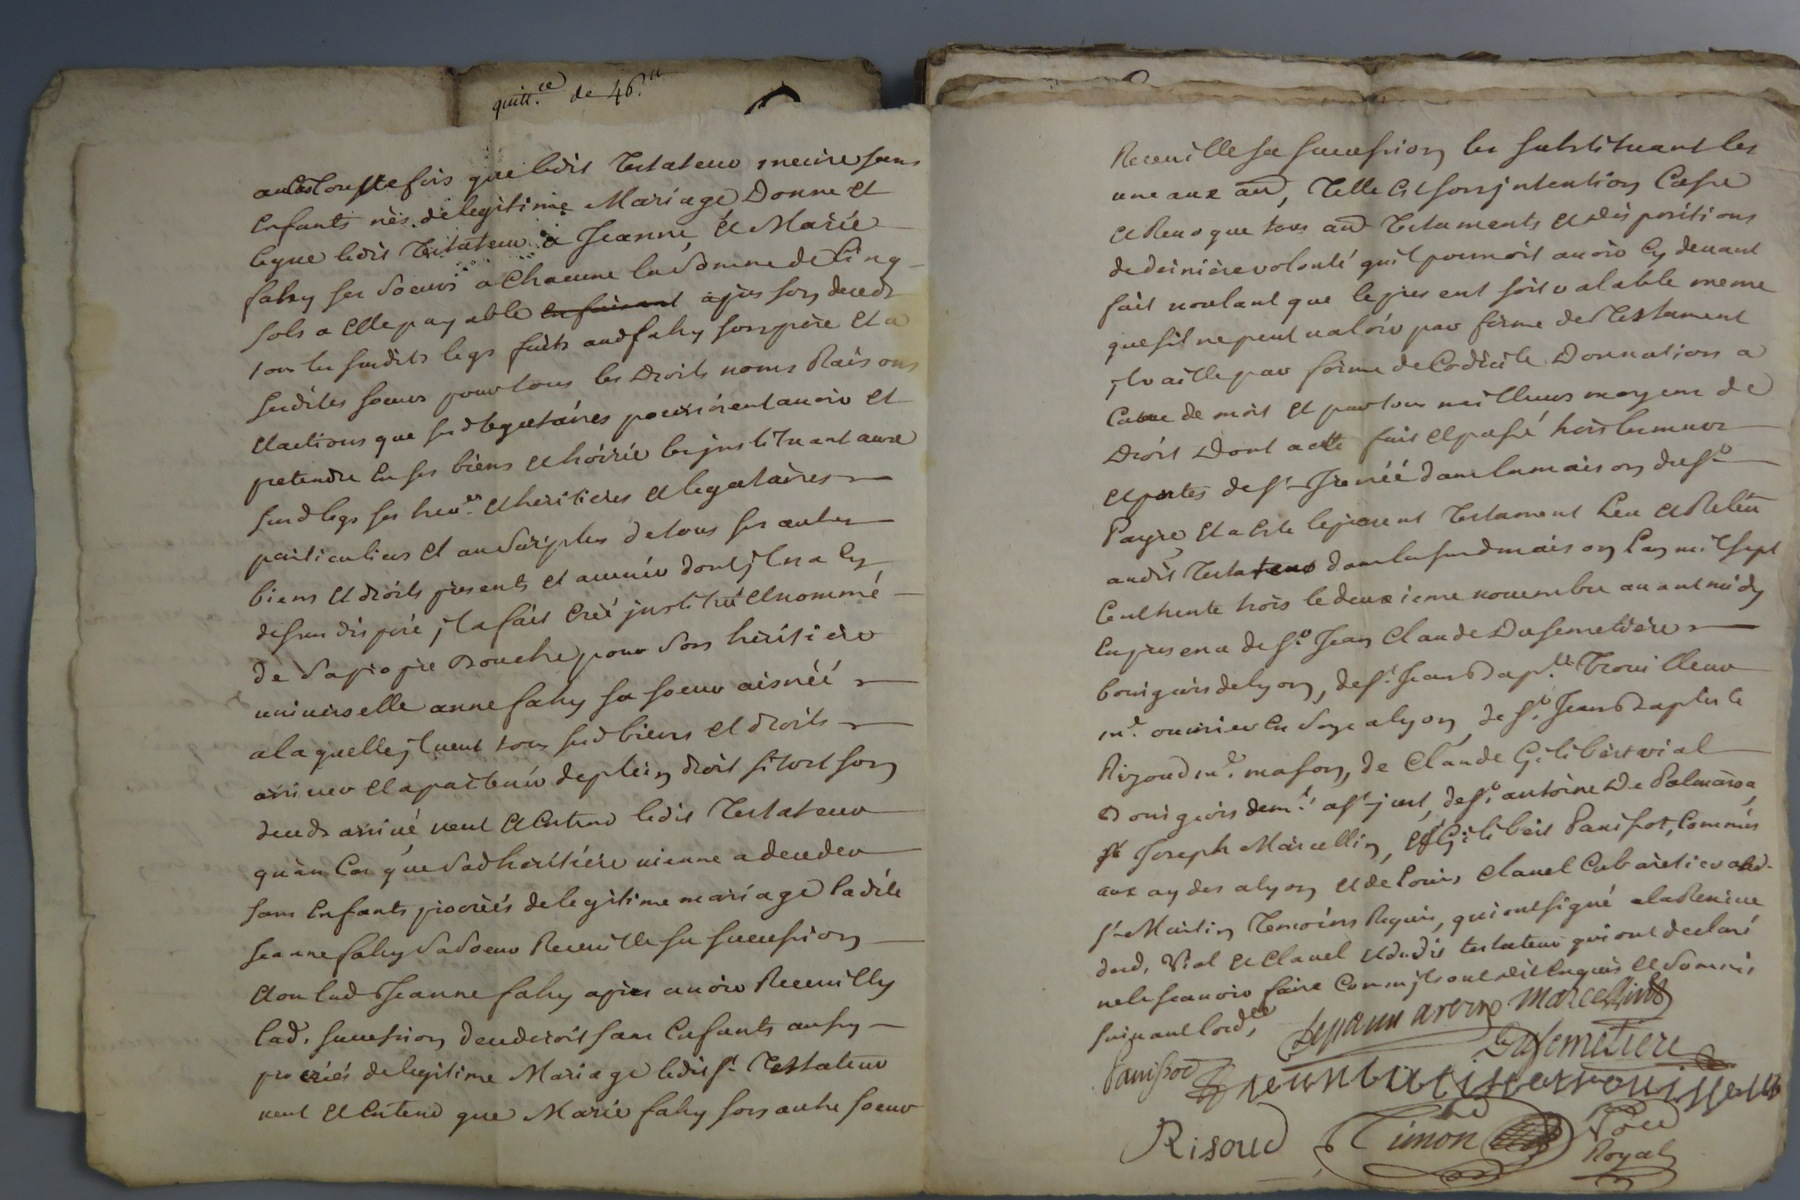 quitt.ce de 46.ll
au cas touttefois que ledit Testateur meure sans
Enfants nés de legitime Mariage Donne Et
legue ledit Testateur a Jeanne, & Marie
fahy ses Soeurs a Chacune la Somme de Cinq
sols a Elle payable en faisant apres son deceds
tous les susdits legs faits aud fahy son père Et a
sesdites soeurs pour tous les Droits noms Raisons
Et actions que sesd legataires pourroient avoir et
pretendre En ses biens et hoirie les instituant avec
susd legs ses heri.ers & heritieres & legataires
particuliers Et au Surplus de tous ses autres
biens Et droits presents et avenir dont jl n'a Cy
dessus disposé, jl a fait Créé institué & nommé
de Sa propre Bouche pour Son héritière
universelle anne fahy sa soeur aisnéé
a laquelle jl veut tous sesd biens et droits
arriver & apartenir de plein droit sitost son
deceds arrivé, veut & Entend ledit Testateur
qu'en Cas que Sad héritière vienne a deceder
sans Enfants procréés de legitime mariage ladite
Jeanne fahy Sa Soeur Recueille sa succession
Et ou lad Jeanne fahy apres avoir Recueilly
lad. succession decederoit sans Enfants aussy
procréés de legitime Mariage ledit s.r Testateur
veut & Entend que Marie fahy son autre soeur
Recueille sa succession les substituant les
une aux au, Telle Est son jntention Casse
& Revoque tous au Testaments & dispositions
de derniere volonté quil pourroit avoir Cy devant
fait voulant que le present soit valable meme
que sil ne peut valoir par forme de Testament
jl vaille par forme de Codicile Donnation a
Cause de mort Et par tous meilleurs moyens de
Droit Dont acte fait & passé hors les murs
& portes de st Jrenéé dans la maison du s.r
Payre, Et a Este le present Testament Leu & Releu
audit Testateur dans la susd maison Lan mil sept
Cent trente trois le deuxieme novembre avant midy
En presence de s.r Jean Claude Dusemetière
bourgeois de lyon, de s.r Jean Bap.te Trouilleux
m.e ouvrier En Soye a lyon, de s.r Jean Baptiste
Rizoud m.e masson, de Claude Gilibert vial
Bourgeois dem.t a st just, de s.r antoine De Palmaroa,
st Joseph Marcellin, & Gilibert Panissot, Commis
aux aydes a lyon & de Louis Clavel Cabaretier aud.
st Martin Temoins Requis, qui ont signé a la Reserve
desd. Vial & Clavel & dudit testateur qui ont declaré
ne le scavoir faire Comme jls ont dit Enquis & Sommés
suivant lord.ce
Marcellin
Dusemetiere
Panissod
jean batiste trouilleux
Risoud
Timon
Royal